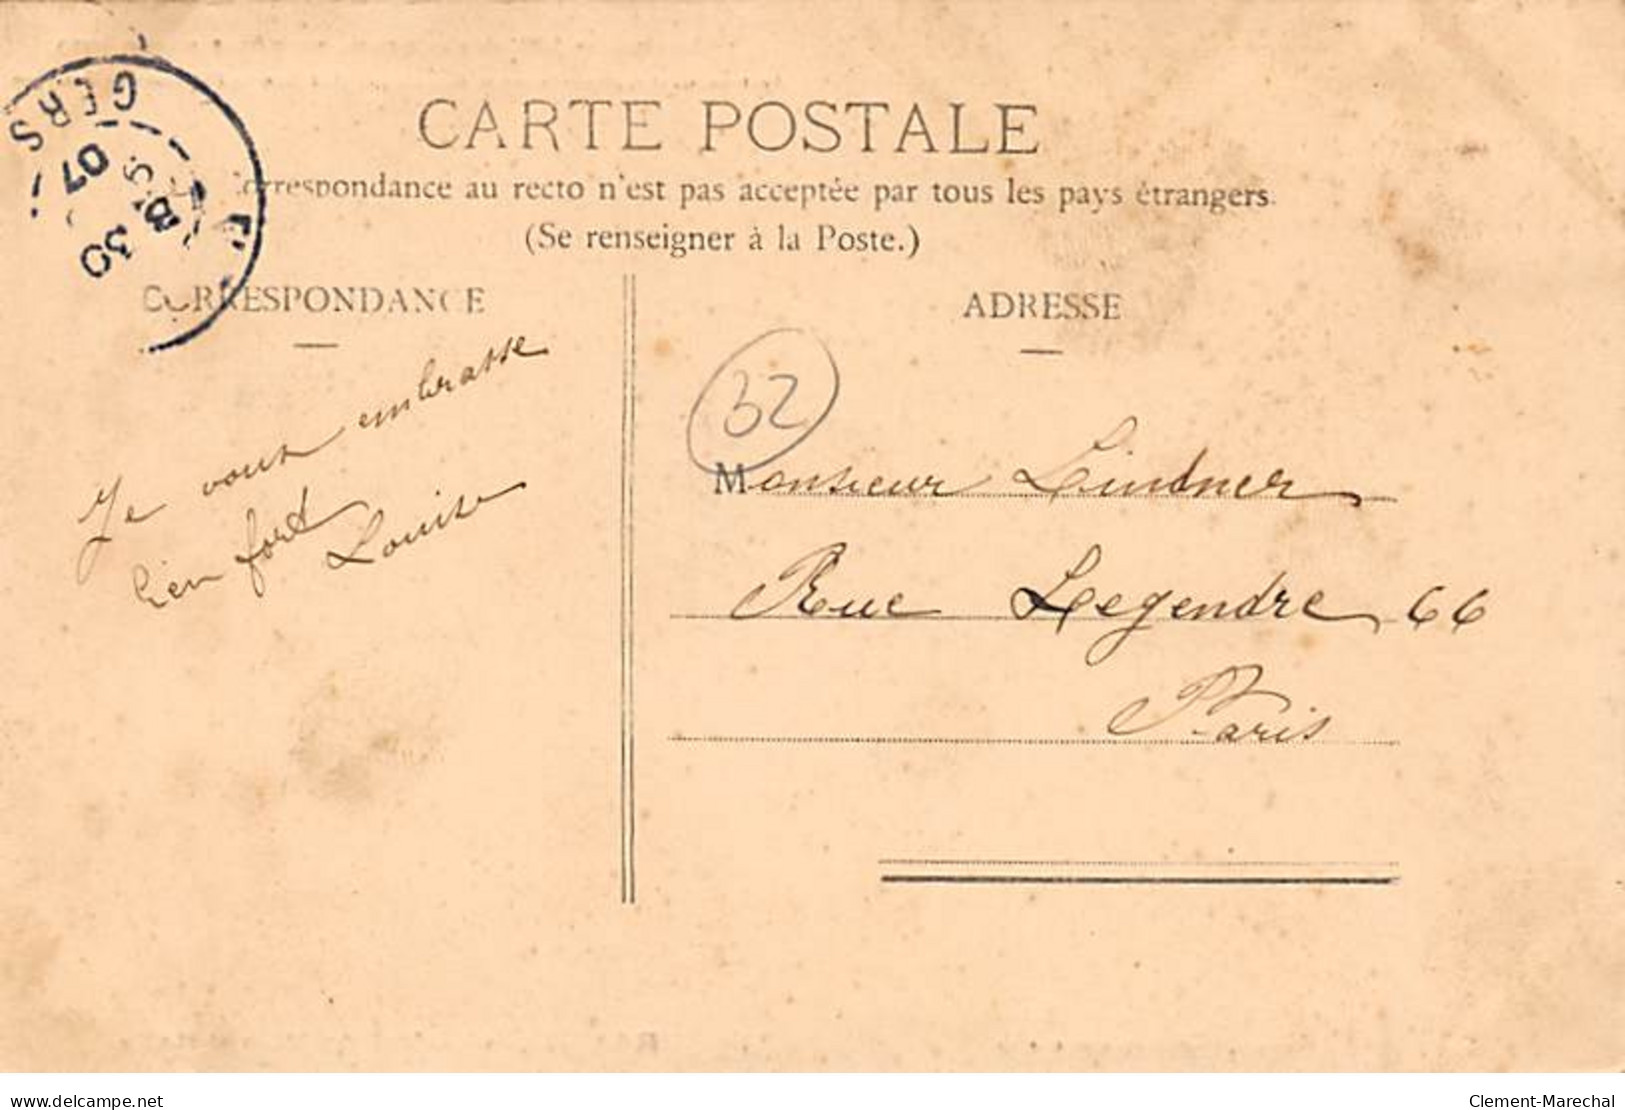 GERS
07
8 30
CARTE POSTALE
Correspondance au recto n'est pas acceptée par tous les pays étrangers.
(Se renseigner à la Poste.)
CORRESPONDANCE
ADRESSE
Je vous embrasse
bien fort
Louise
32
Monsieur Lindner
Rue Legendre 66
Paris
delcampe.net
Clement-Marechal